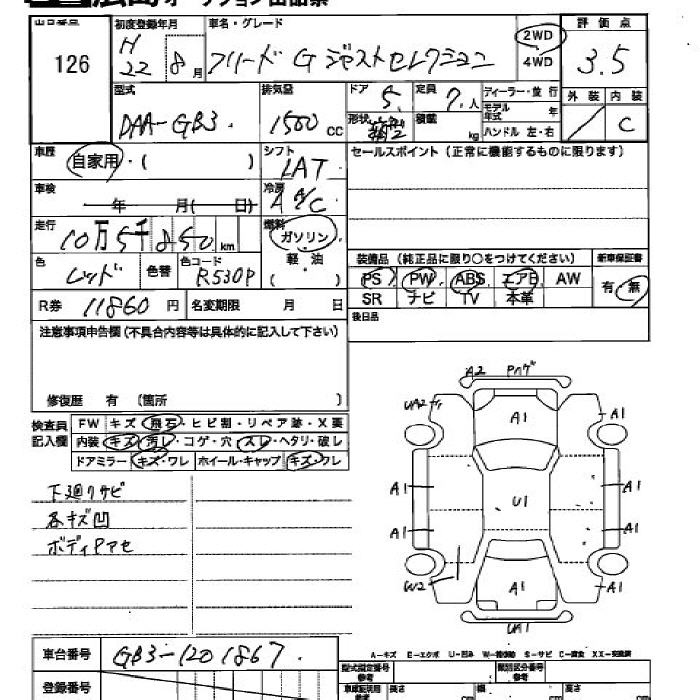 広島オークション出品票
出品番号 初度登録年月 車名・グレード 評価点
126 H22 8月 フリード G ジャストセレクション 2WD 4WD 3.5
型式 排気量 ドア 定員 ディーラー・並行 外装 内装
DAA-GB3. 1500CC 5. 7.人 モデル年式 年 / C
形状 積載 kg ハンドル 左・右
車歴 シフト セールスポイント(正常に機能するものに限ります)
自家用・( ) LAT
車検 年 月(日) 冷房 A/C
走行 燃料
10万5千850km ガソリン.
色 色コード 軽・油 装備品(純正品に限り○をつけてください) 新車保証書
レッド 色替 R530P ( ) PS PW ABS エアB AW 有・無
SR ナビ TV 本革
R券 11860円 名変期限 月 日 後日品
注意事項申告欄(不具合内容等は具体的に記入して下さい)
修復歴 有 (箇所 )
検査員記入欄 FW キズ・飛石・ヒビ割・リペア跡・X要
内装 キズ・汚レ・コゲ・穴・スレ・ヘタリ・破レ
ドアミラー キズ・ワレ ホイール・キャップ キズ・ワレ
下廻りサビ
各キズ凹
ボディアセ
A2
UA2 A1 A1
A1 A1
U1
A1 A1
W2 A1 A1
UA1
A-キズ E-エクボ U-凹み W-補修跡 S-サビ C-腐食 XX-交換済
車台番号 GB3-1201867.
登録番号
型式指定番号 参考 類別区分番号 参考
長さ cm 幅 cm 高さ cm